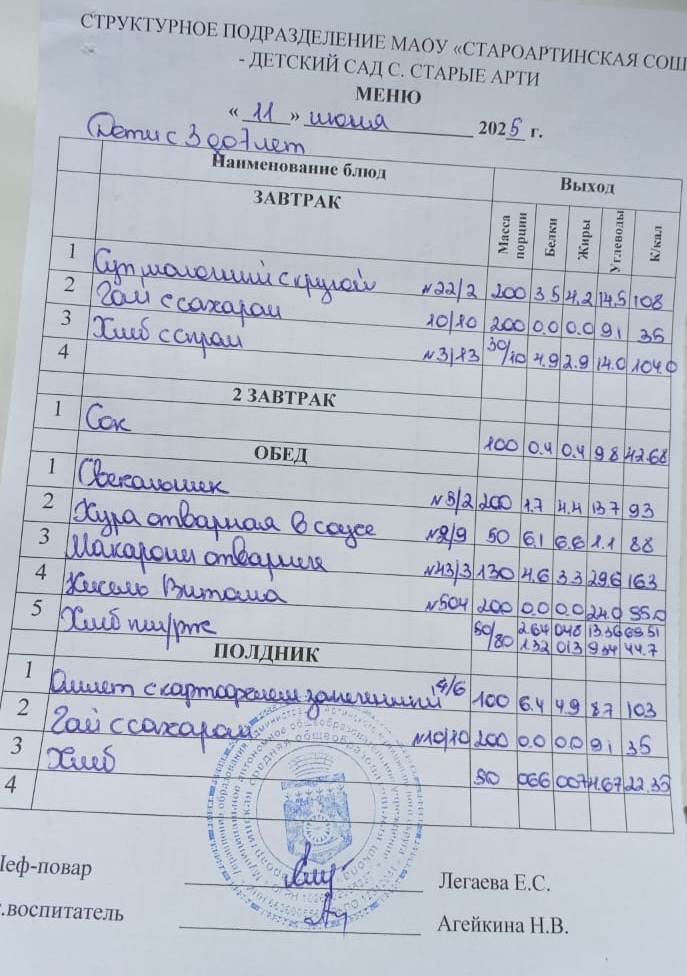 СТРУКТУРНОЕ ПОДРАЗДЕЛЕНИЕ МАОУ «СТАРОАРТИНСКАЯ СОШ
- ДЕТСКИЙ САД С. СТАРЫЕ АРТИ
МЕНЮ
« 11 » июня 2025 г.
Дети с 3 до 7 лет
Наименование блюд Выход
ЗАВТРАК Масса порции Белки Жиры Углеводы К/кал
1 Суп молочный с крупой №22/2 200 3 5 4,2 14,5 108
2 Чай с сахаром 10/10 200 0.0 0.0 9,1 35
3 Хлеб с сыром №3/13 30/10 4.9 2.9 14.0 104.0
4
2 ЗАВТРАК
1 Сок 100 0.4 0.4 9 8 42.68
ОБЕД
1 Свекольник №5/2 200 1.7 4.4 13 7 93
2 Кура отварная в соусе №2/9 50 6,1 6.6 1.1 88
3 Макароны отварные №43/3 130 4.6 3 3 29,6 163
4 Кисель Витоша №504 200 0.0 0.0 24.0 95.0
5 Хлеб пш/рж 50/80 2.64 048 13.36 69 51
1.32 013 9 34 44.7
ПОЛДНИК
1 Омлет с картофелем запеченный 4/6 100 6.4 4.9 8 7 103
2 Чай с сахаром №10/10 200 0.0 0.0 9,1 35
3 Хлеб 50 066 007 4.67 22.35
4
Шеф-повар Легаева Е.С.
.воспитатель Агейкина Н.В.